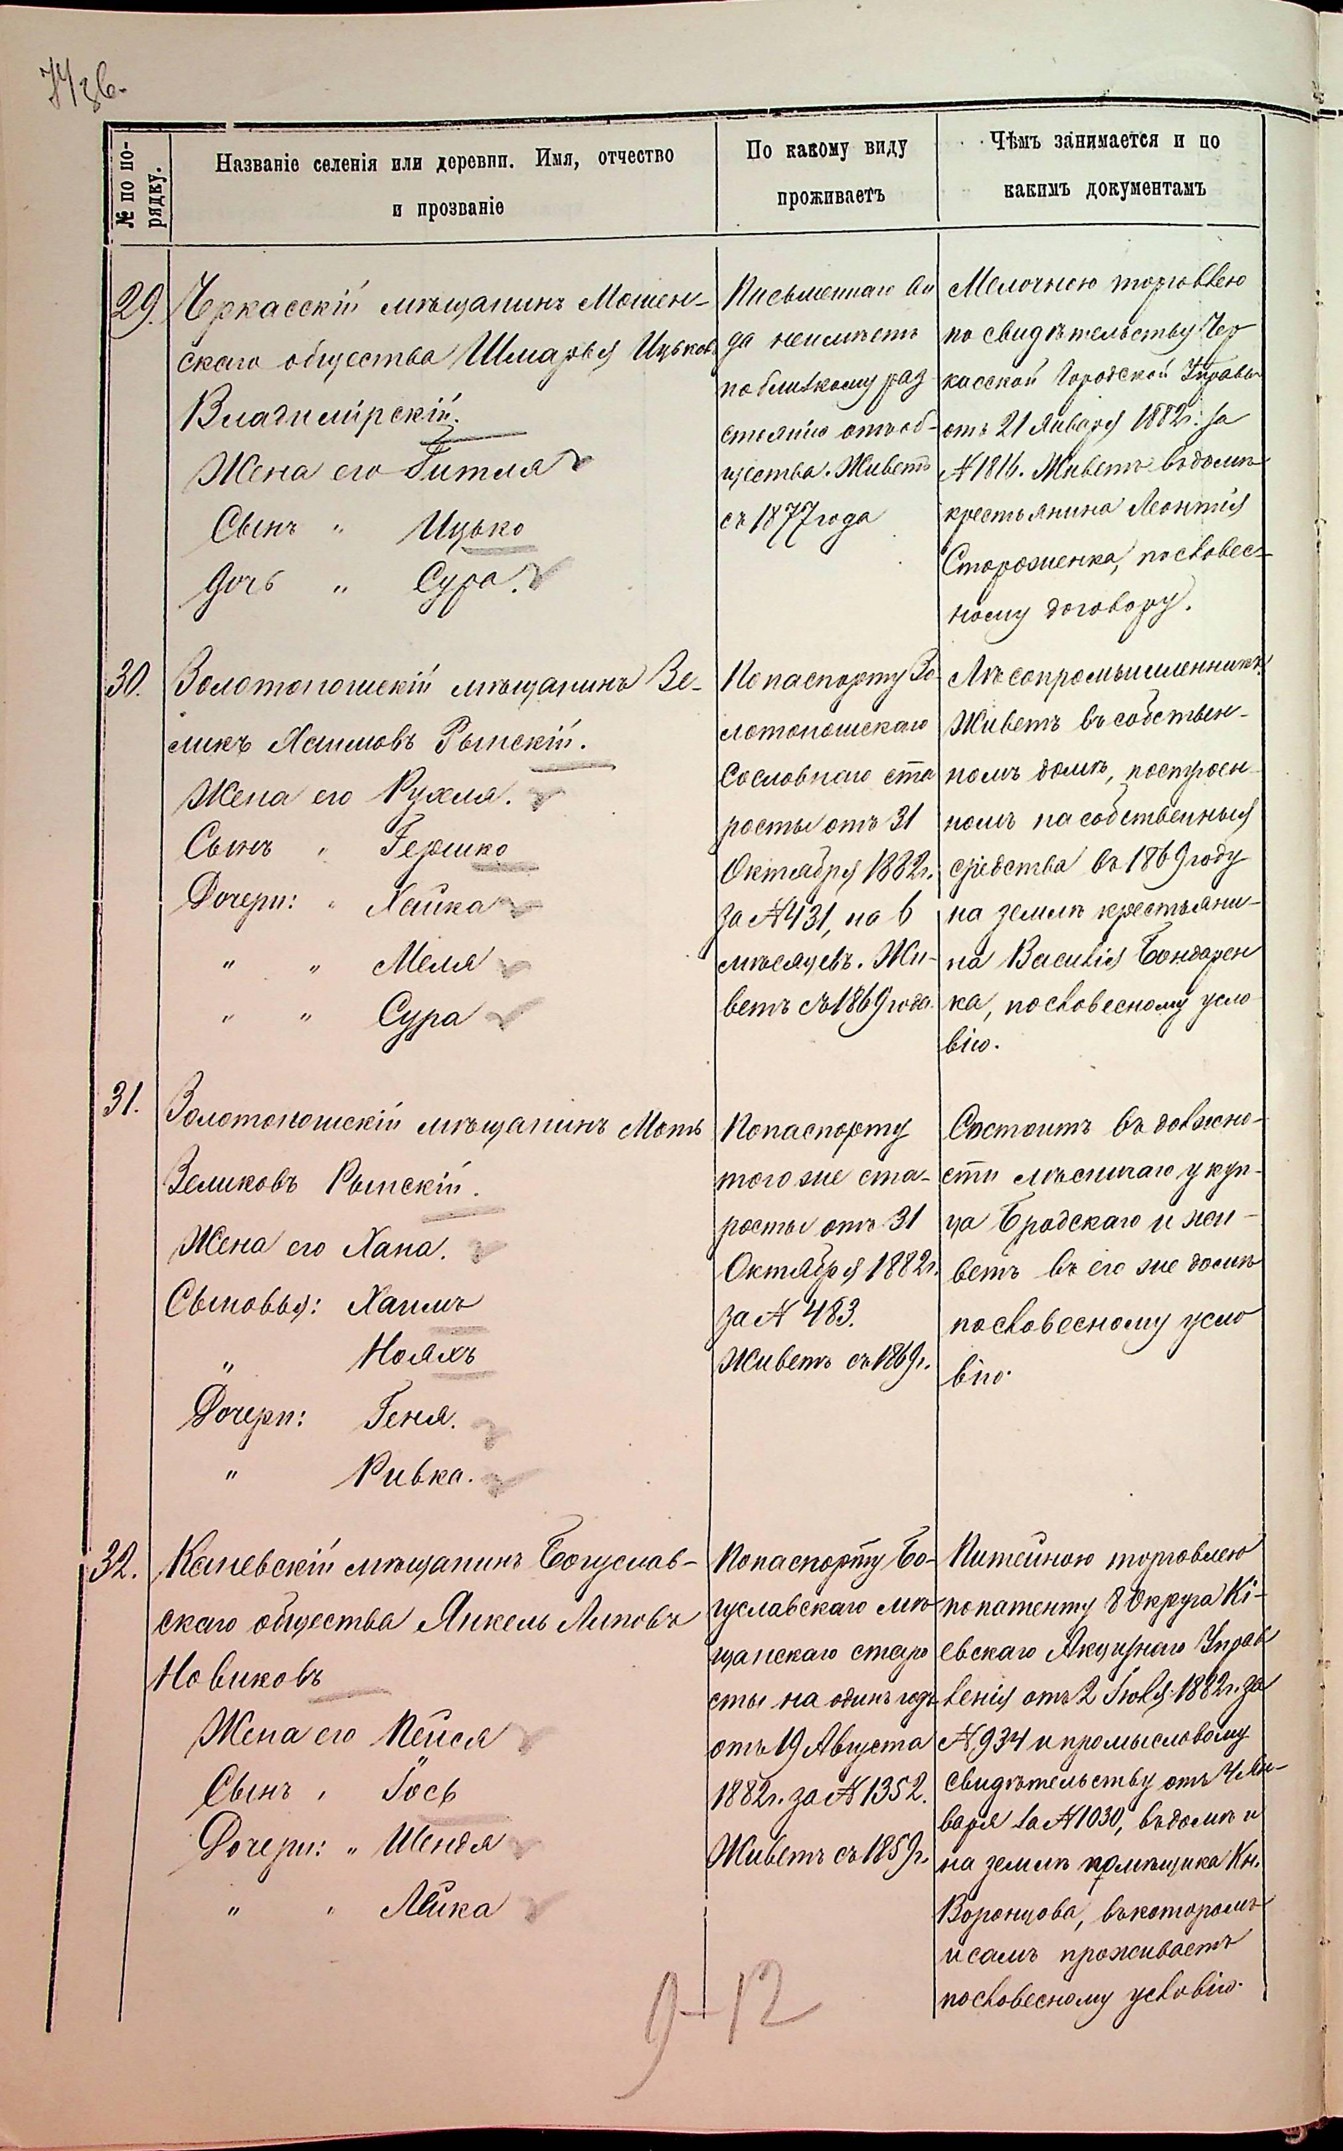 № по по-
рядку.
Названіе селенія или деревни. Имя, отчество
и прозваніе
По какому виду
проживаетъ
Чѣмъ занимается и по
какимъ документамъ
29.
Черкасскій мѣщанинъ Мошен-
скаго общества Шмарья Ицьковъ
Владимірскій.
Жена его Гитля
Сынъ " Ицько
Дочь " Сура.
Письменнаго ви
да неимѣетъ
по близкому раз
стоянію отъ об-
щества. Живетъ
съ 1877 года
Мелочною торговлею
по свидѣтельству Чер
касской Городской Управы
отъ 21 Января 1882 г. за
№ 1816. Живетъ въ домѣ
крестьянина Леонтія
Стороженка, по словес-
ному договору.
30.
Золотоношскій мѣщанинъ Зе-
ликъ Хаимовъ Рытскій.
Жена его Рухля.
Сынъ " Гершко
Дочери: " Хайка
" " Меля
" " Сура
По паспорту Зо-
лотоношскаго
Сословнаго ста
росты отъ 31
Октября 1882 г.
за № 431, на 6
мѣсяцевъ. Жи-
ветъ съ 1869 года.
Лѣсопромышленникъ.
Живетъ въ собствен-
номъ домѣ, построен-
номъ на собственныя
средства въ 1869 году
на землѣ крестьяни-
на Василія Бондарен
ка, по словесному усло
вію.
31.
Золотоношскій мѣщанинъ Моть
Зеликовъ Рытскій.
Жена его Хана.
Сыновья: Хаимъ
" Ноямъ
Дочери: Геня.
" Ривка.
По паспорту
того же ста-
росты отъ 31
Октября 1882 г.
за № 483.
Живетъ съ 1869 г.
Состоитъ въ должно-
сти лѣсничаго у куп-
ца Бродскаго и жи-
ветъ въ его же домѣ
по словесному усло
вію.
32.
Каневскій мѣщанинъ Богуслав-
скаго общества Янкель Липовъ
Новиковъ
Жена его Пейся
Сынъ " Іось
Дочери: " Шендя
" " Лейка
По паспорту Бо-
гуславскаго мѣ
щанскаго старо
сты на одинъ годъ
отъ 19 Августа
1882 г. за № 1352.
Живетъ съ 1859 г.
Питейною торговлею
по патенту 8 Округа Кі-
евскаго Акцизнаго Управ
ленія отъ 2 Іюля 1882 г. за
№ 934 и промысловому
свидѣтельству отъ 4 Ян-
варя за № 1030, въ домѣ и
на землѣ помѣщика Кн.
Воронцова, въ которомъ
и самъ проживаетъ
по словесному условію.
9-12